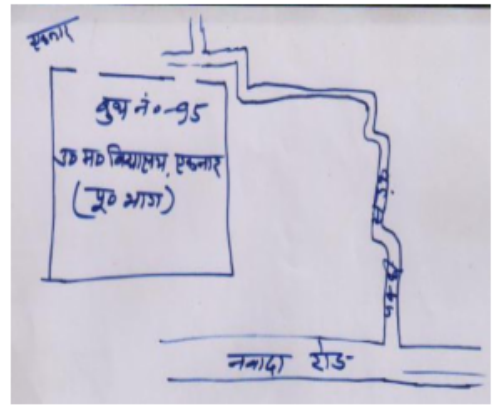 एकनार
बुथ नं०-95
उ० म० विद्यालय, एकनार
(पू० भाग)
रोड
पक्की
नवादा रोड